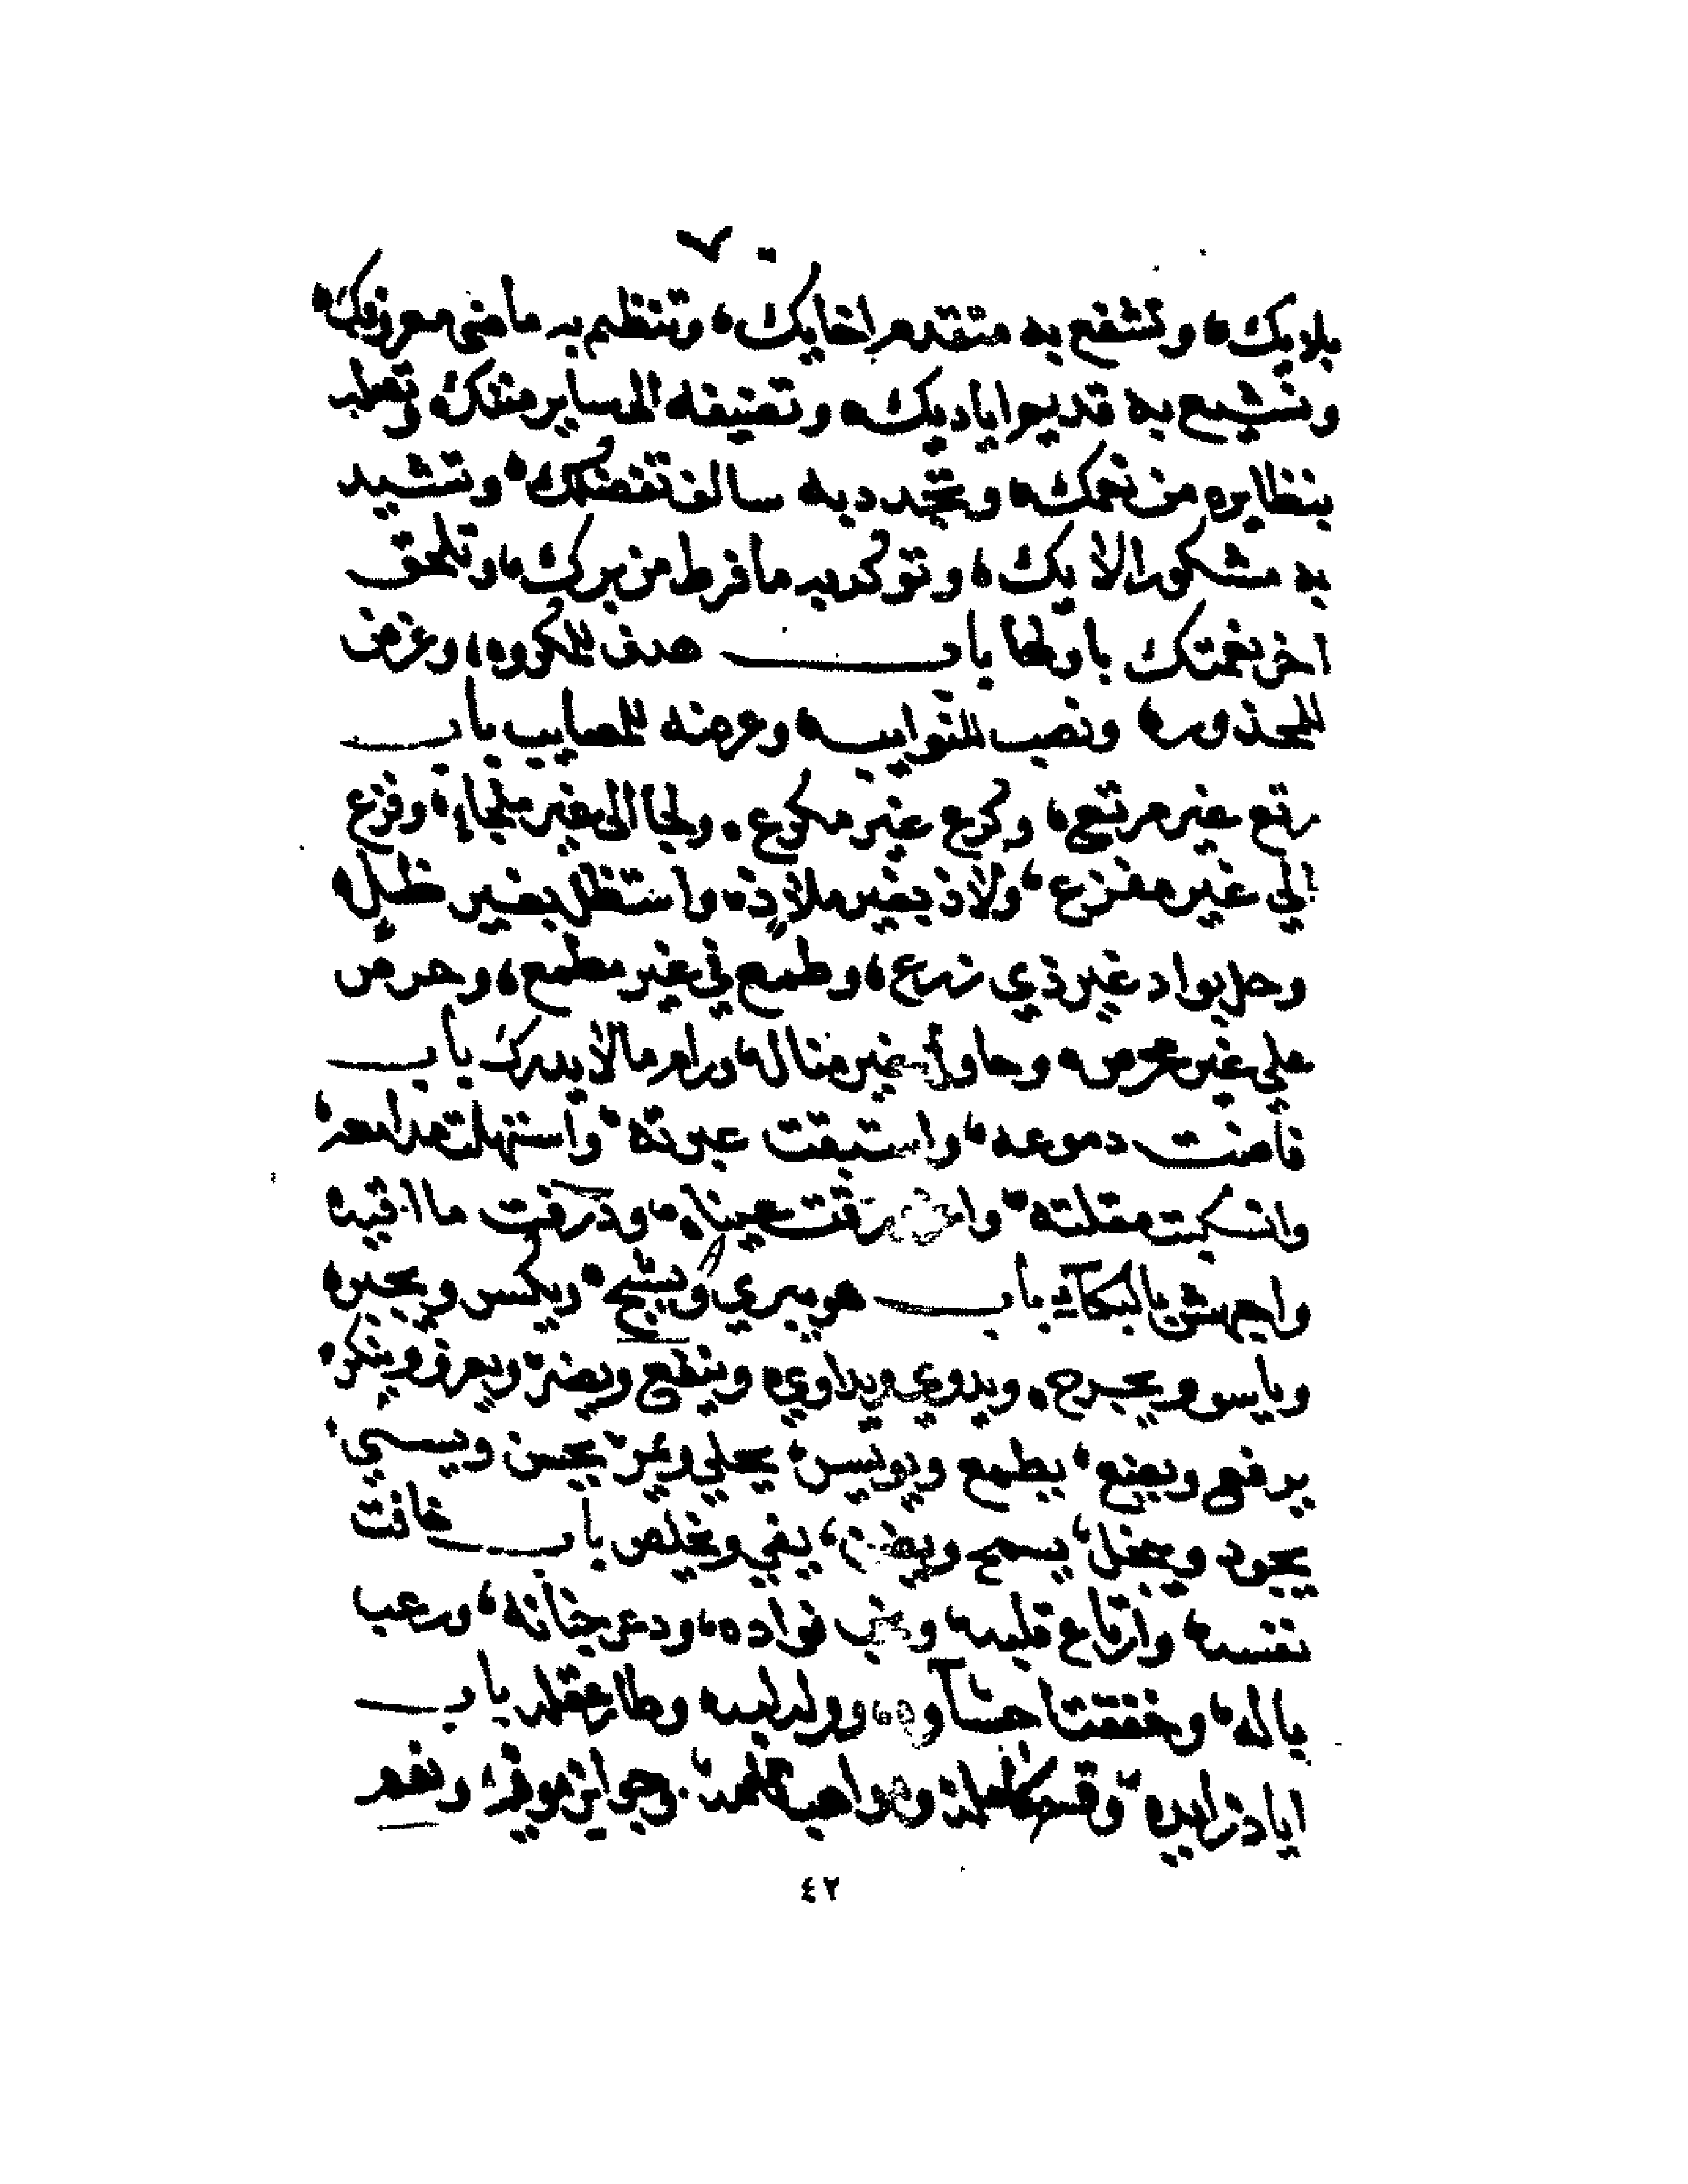 ٧٠
بلايك، وتشفع به متقدم اخايك، وتنظم به ما مضى معروفك،
وتشيع به قديم اياديك، وتضيفه الى ساير مننك،
بنظايره من نعمك، وتجدد به سالف تفضلك، وتشيد
به مشكور الايك، وتوكد به ما فرط من برك، وتلحق
اخر نعمتك باولها باب هدف للمكروه، وغرض
للمحذور، ونصب للنوايب، وعرضه للمصايب باب
رتع غير مرتع، وكرع غير مكرع، ولجا الى غير ملجاء، وفزع
الي غير مفزع، ولاذ بغير ملاذ، واستظل بغير ظل،
وحل بواد غير ذي زرع، وطمع في غير مطمع، وحرص
علي غير محرص، وحاول غير مناله، ورام مالا يدرك باب
فاضت دموعه، واستبقت عبرته، واستهلت مدامعه،
وانسكبت مقلته، واغرورقت عيناه، وذرفت ما اقيه
واجهش بالبكاء باب هو يبري ويشج، ويكسر ويجبر،
وياسو ويجرح، ويدوي ويداوي، وينفع ويضر، ويعرف وينكر،
يرفع ويضع، يطمع ويوئيس، يحلي ويمر، يحسن ويسيء،
يجود ويبخل، يسمح ويضن، يفي ويخلص باب خافت
نفسه، وارتاع قلبه، فواده، وذعر جنانه، ورعب
باله، وخفقت احشاوه، ووله لبه، وطار عقله باب
اياد زايده، وقسم كامله، ومواهب، وجوايز موفره، ونعم
٤٢